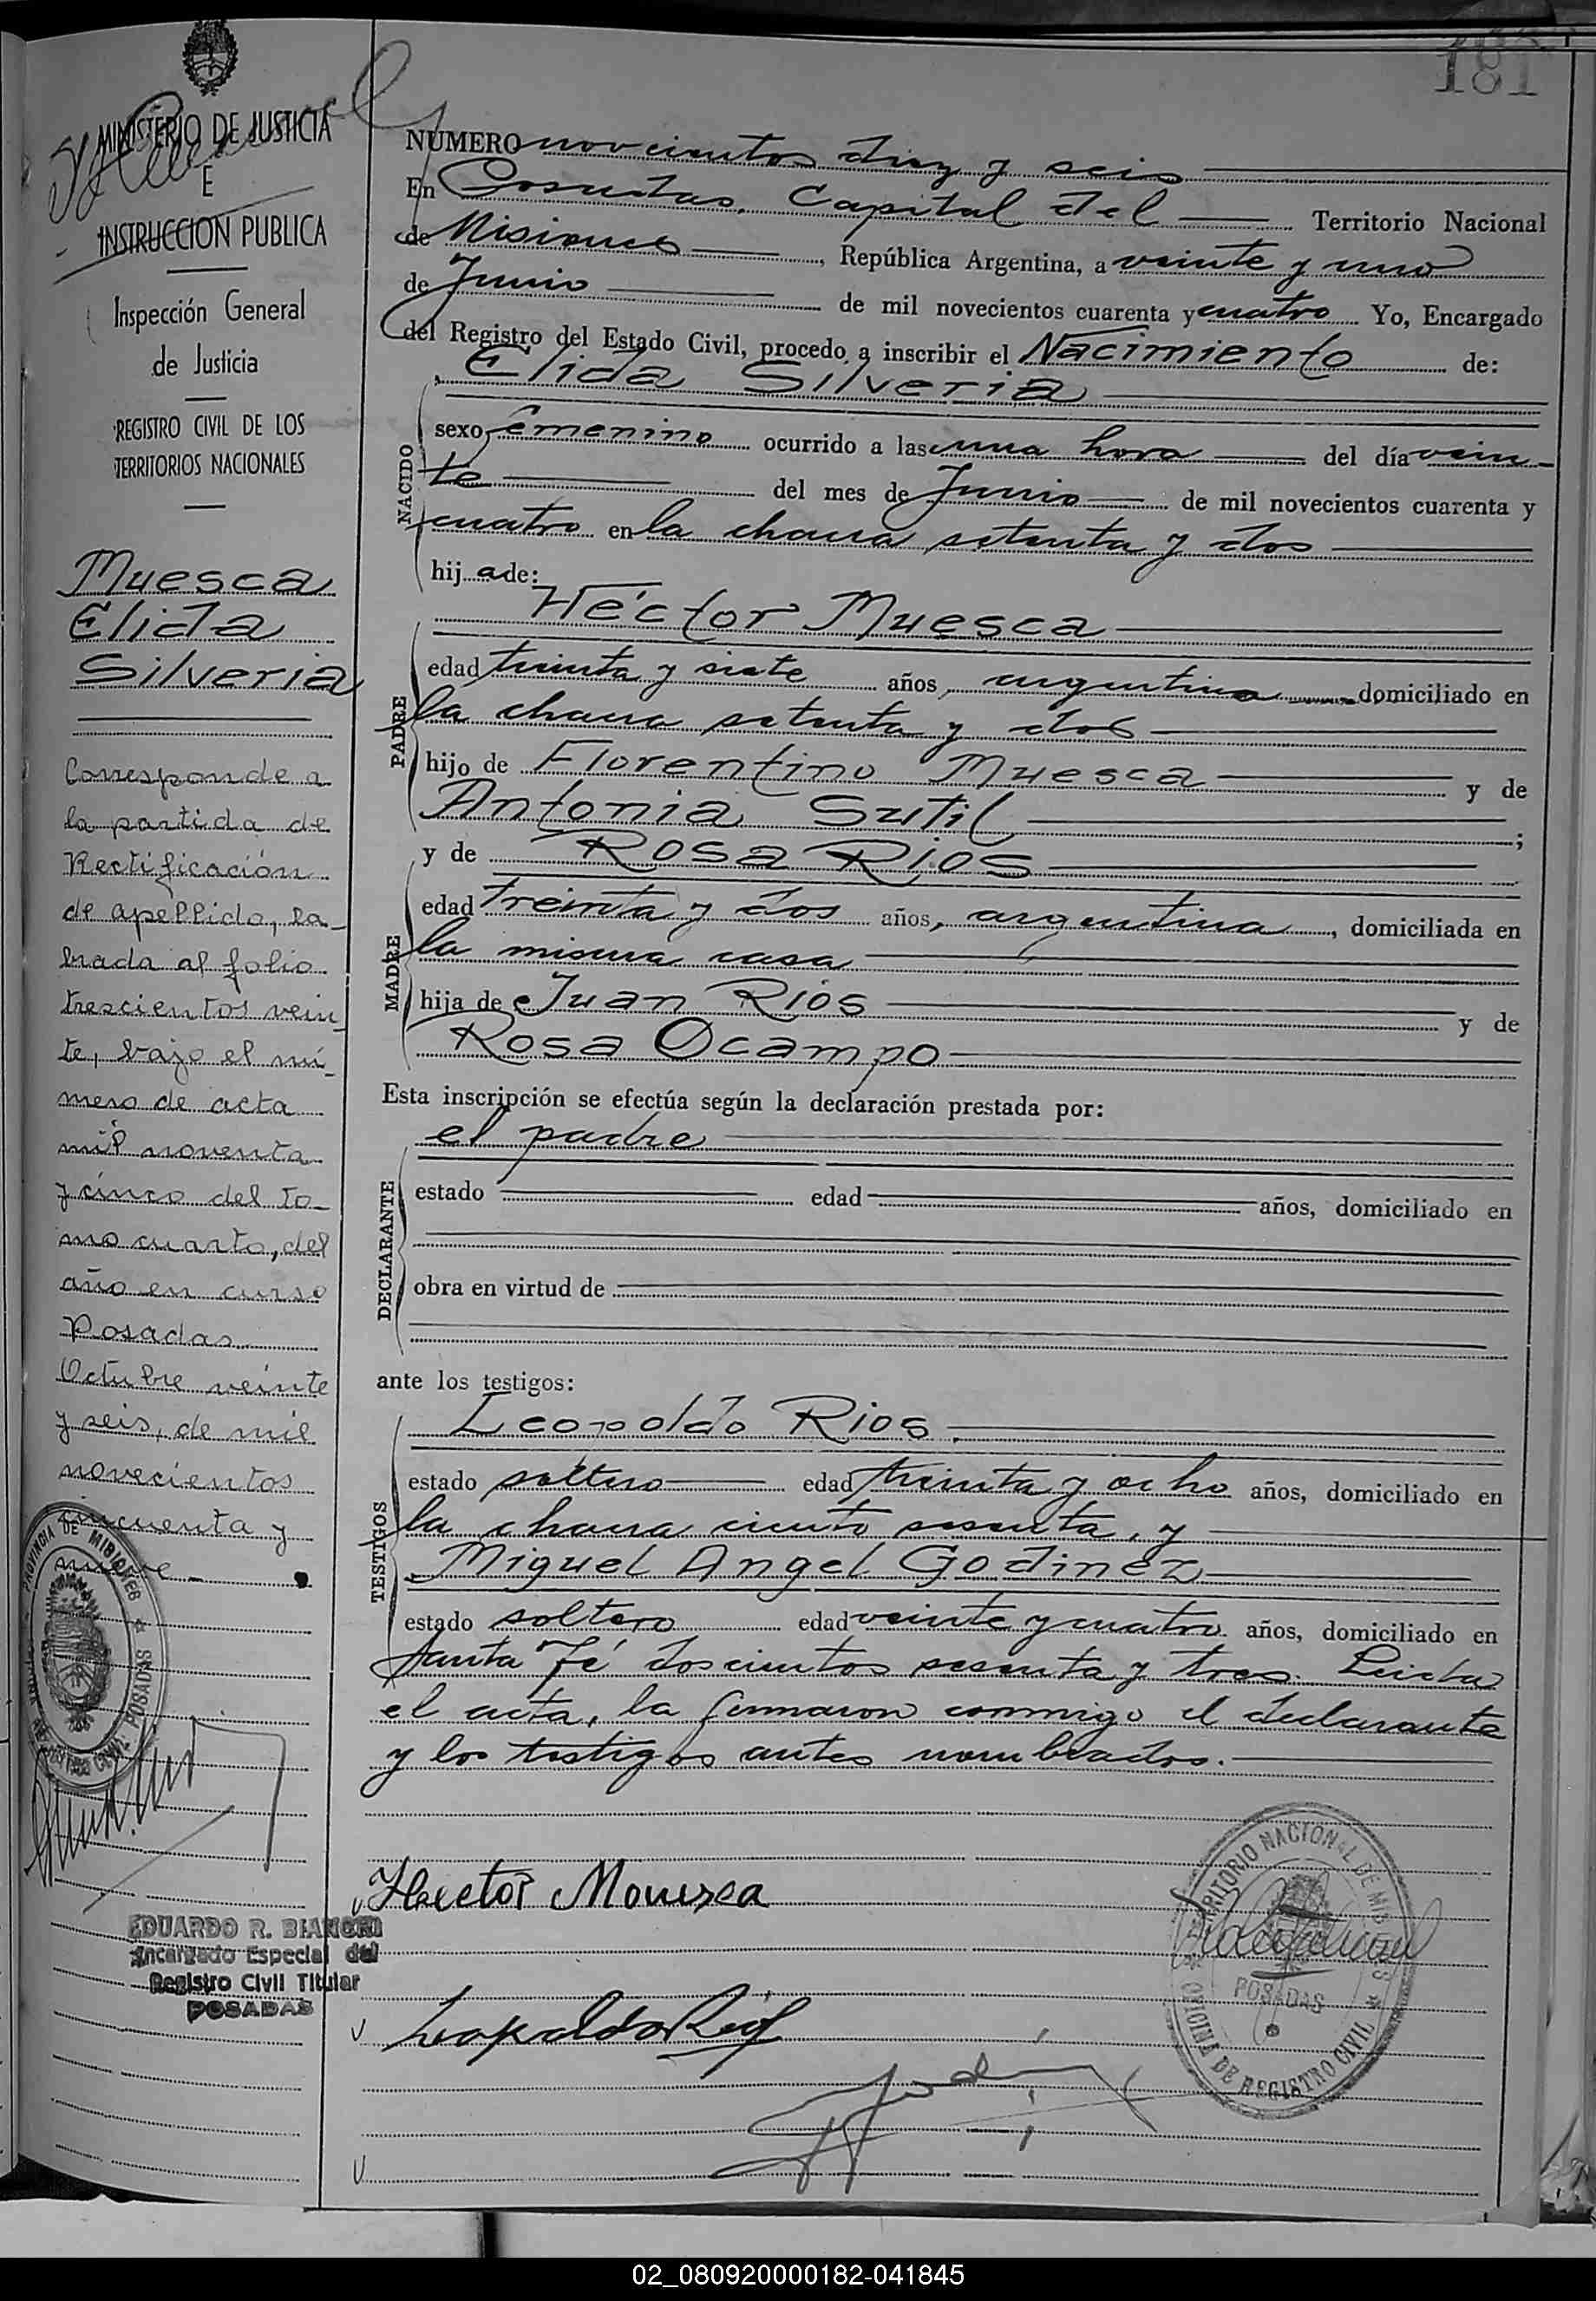 181
MINISTERIO DE JUSTICIA
E
INSTRUCCION PUBLICA
Inspección General
de Justicia
REGISTRO CIVIL DE LOS
TERRITORIOS NACIONALES
Muesca
Elida
Silveria
Corresponde a
la partida de
Rectificación
de apellido, la-
brada al folio
trescientos vein-
te, bajo el nú-
mero de acta
mil noventa
y cinco del to-
mo cuarto, del
año en curso
Posadas
Octubre veinte
y seis, de mil
novecientos
cincuenta y
nueve.-
PROVINCIA DE MISIONES
POSADAS
EDUARDO R. BIANCHI
Encargado Especial del
Registro Civil Titular
POSADAS
NUMERO novecientos diez y seis
En Posadas, Capital del Territorio Nacional
de Misiones, República Argentina, a veinte y uno
de Junio de mil novecientos cuarenta y cuatro Yo, Encargado
del Registro del Estado Civil, procedo a inscribir el Nacimiento de:
Elida Silveria
NACIDO
sexo femenino ocurrido a las una hora del día vein-
te del mes de Junio de mil novecientos cuarenta y
cuatro en la chacra setenta y dos
hij a de:
Héctor Muesca
PADRE
edad treinta y siete años, argentino domiciliado en
la chacra setenta y dos
hijo de Florentino Muesca y de
Antonia Sutil ;
y de Rosa Rios
MADRE
edad treinta y dos años, argentina, domiciliada en
la misma casa
hija de Juan Rios y de
Rosa Ocampo
Esta inscripción se efectúa según la declaración prestada por:
el padre
DECLARANTE
estado edad años, domiciliado en
obra en virtud de
ante los testigos:
Leopoldo Rios.
TESTIGOS
estado soltero edad treinta y ocho años, domiciliado en
la chacra ciento sesenta, y
Miguel Angel Godinez
estado soltero edad veinte y cuatro años, domiciliado en
Santa Fé doscientos sesenta y tres. Leída
el acta, la firmaron conmigo el declarante
y los testigos antes nombrados.
Hector Mouesca
Leopoldo Rios
TERRITORIO NACIONAL DE MISIONES
POSADAS
OFICINA DE REGISTRO CIVIL
02_080920000182-041845